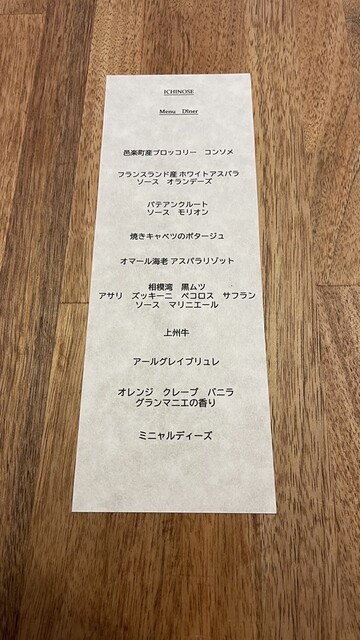 ICHINOSE
Menu Dîner
邑楽町産ブロッコリー コンソメ
フランスランド産 ホワイトアスパラ
ソース オランデーズ
パテアンクルート
ソース モリオン
焼きキャベツのポタージュ
オマール海老 アスパラリゾット
相模湾 黒ムツ
アサリ ズッキーニ ペコロス サフラン
ソース マリニエール
上州牛
アールグレイブリュレ
オレンジ クレープ バニラ
グランマニエの香り
ミニャルディーズ